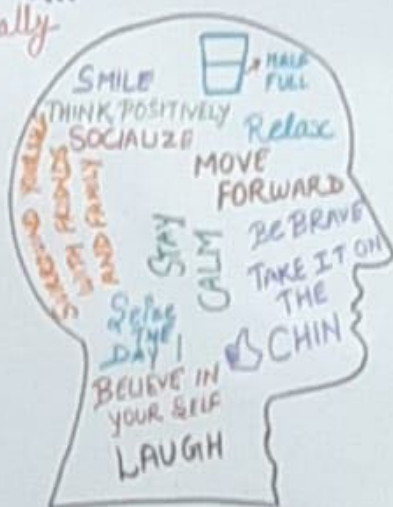 ally
HALF
FULL
SMILE
THINK POSITIVELY
SOCIALIZE
Relax
MOVE
FORWARD
SURROUND YOURSELF
WITH FRIENDS
AND FAMILY
STAY
CALM
BE BRAVE
TAKE IT ON
THE
CHIN
Seize
THE
DAY!
BELIEVE IN
YOUR SELF
LAUGH